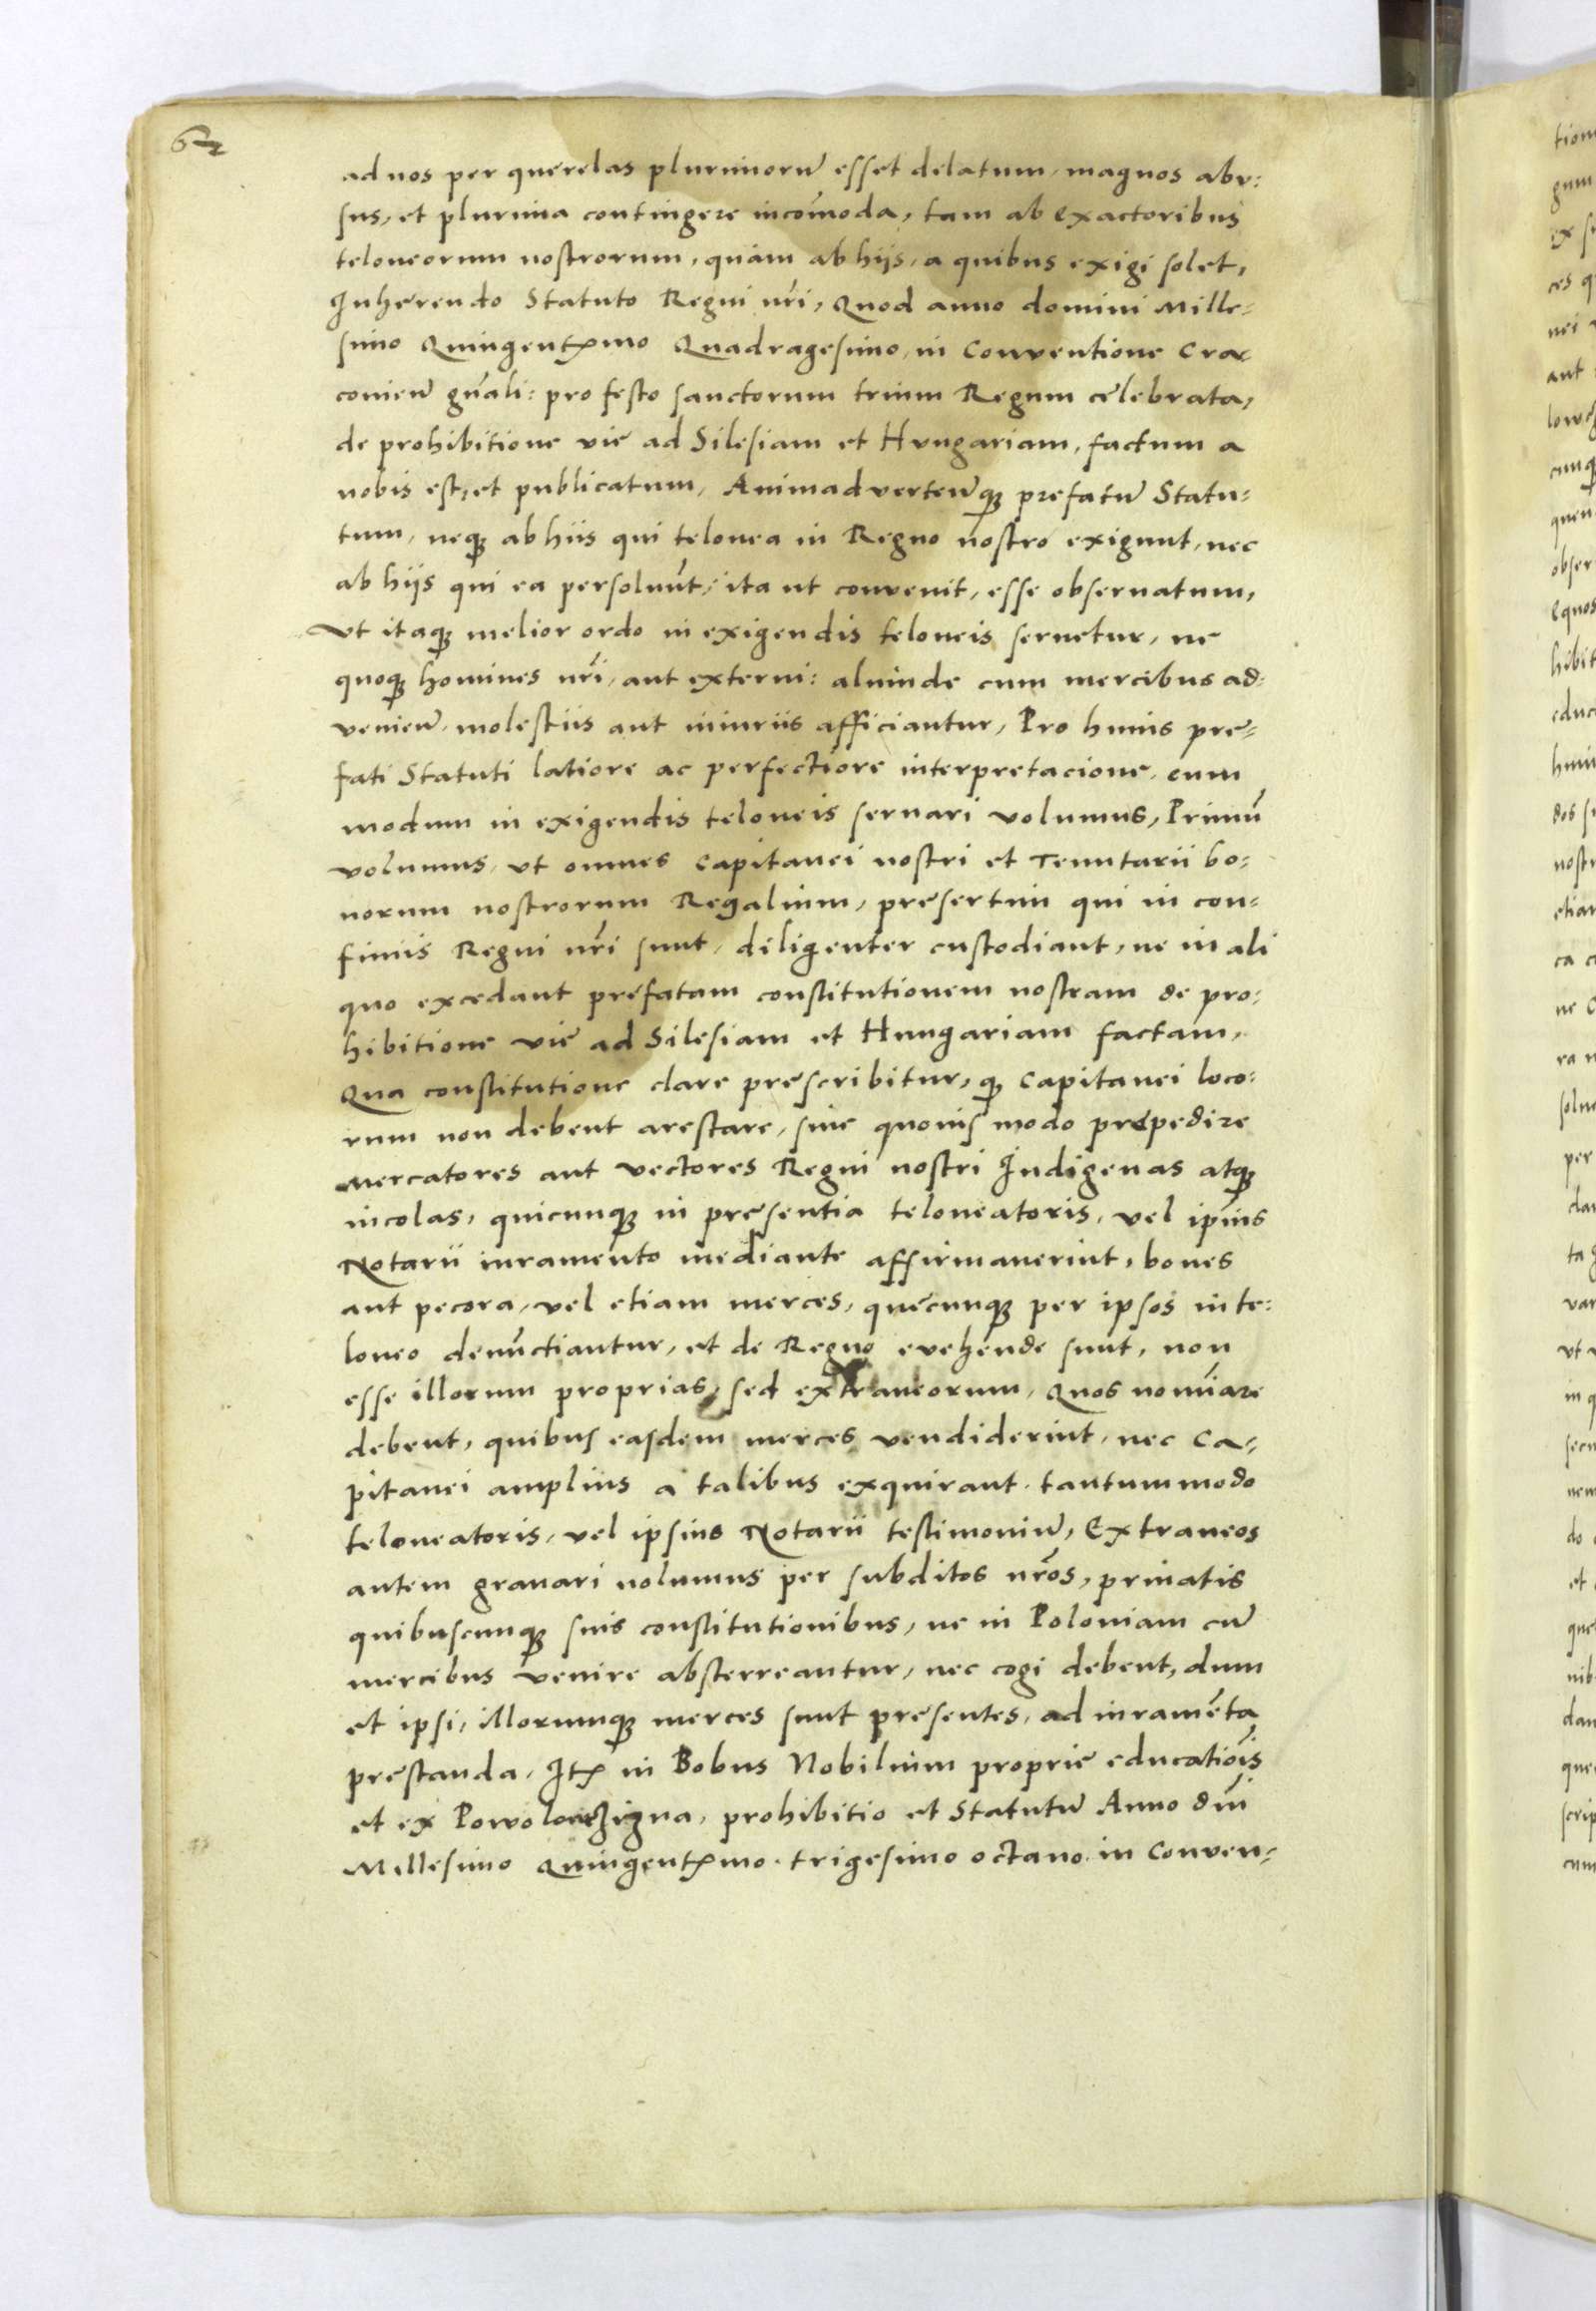 62
ad nos per querelas plurimorū esset delatum, magnos abu:
sus, et plurima contingere incōmoda, tam ab exactoribus
teloneorum nostrorum, quàm ab hijs, a quibus exigi solet,
Inherendo Statuto Regni nr̄i, Quod anno domini Mille=
simo Quingentꝭmo Quadragesimo, in Conventione Cra=
conieñ gn̄ali: pro festo sanctorum trium Regum celebrata,
de prohibitione vie ad Silesiam et Hungariam, factum a
nobis est, et publicatum, Animadverteñqꝫ prefatū Statu=
tum, neqꝫ ab hiis qui telonea in Regno nostro exigunt, nec
ab hijs qui ea persoluūt, ita ut convenit, esse obseruatum,
Ut itaqꝫ melior ordo in exigendis teloneis seruetur, ne
quoqꝫ homines nr̄i, aut externi: aliunde cum mercibus ad=
venieñ, molestiis aut iniuriis afficiantur, Pro huius pre=
fati Statuti latiore ac perfectiore interpretacione, eum
modum in exigendis teloneis seruari volumus, Primū
volumus, ut omnes Capitanei nostri et Tenutarii bo=
norum nostrorum Regalium, presertim qui in con=
finiis Regni nr̄i sunt, diligenter custodiant, ne in ali
quo excedant prefatam constitutionem nostram de pro:
hibitione vie ad Silesiam et Hungariam factam,
Qua constitutione clare prescribitur, qꝫ Capitanei loco:
rum non debent arestare, siue quouis modo prepedire
Mercatores aut vectores Regni nostri Indigenas atqꝫ
incolas, quicunqꝫ in presentia teloneatoris, vel ip̄ius
Notarii iuramento mediante affirmauerint, boues
aut pecora, vel etiam merces, quecunqꝫ per ipsos in te:
loneo denūctiantur, et de Regno evehende sunt, non
esse illorum proprias, sed extraneorum, Quos nomīare
debent, quibus easdem merces vendiderint, nec Ca=
pitanei amplius a talibus exquirant, tantummodo
teloneatoris, vel ipsius Notarii testimoniū, Extraneos
autem grauari nolumus per subditos nr̄os, priuatis
quibuscunqꝫ suis constitutionibus, ne in Poloniam cū
mercibus venire absterreantur, nec cogi debent, dum
et ipsi, illorumqꝫ merces sunt presentes, ad iuramēta
prestanda, Itꝭ in Bobus Nobilium proprie educatiōis
et ex Powoloczizna, prohibitio et Statutū Anno dn̄i
Millesimo Quingentꝭmo trigesimo octauo in Conven=